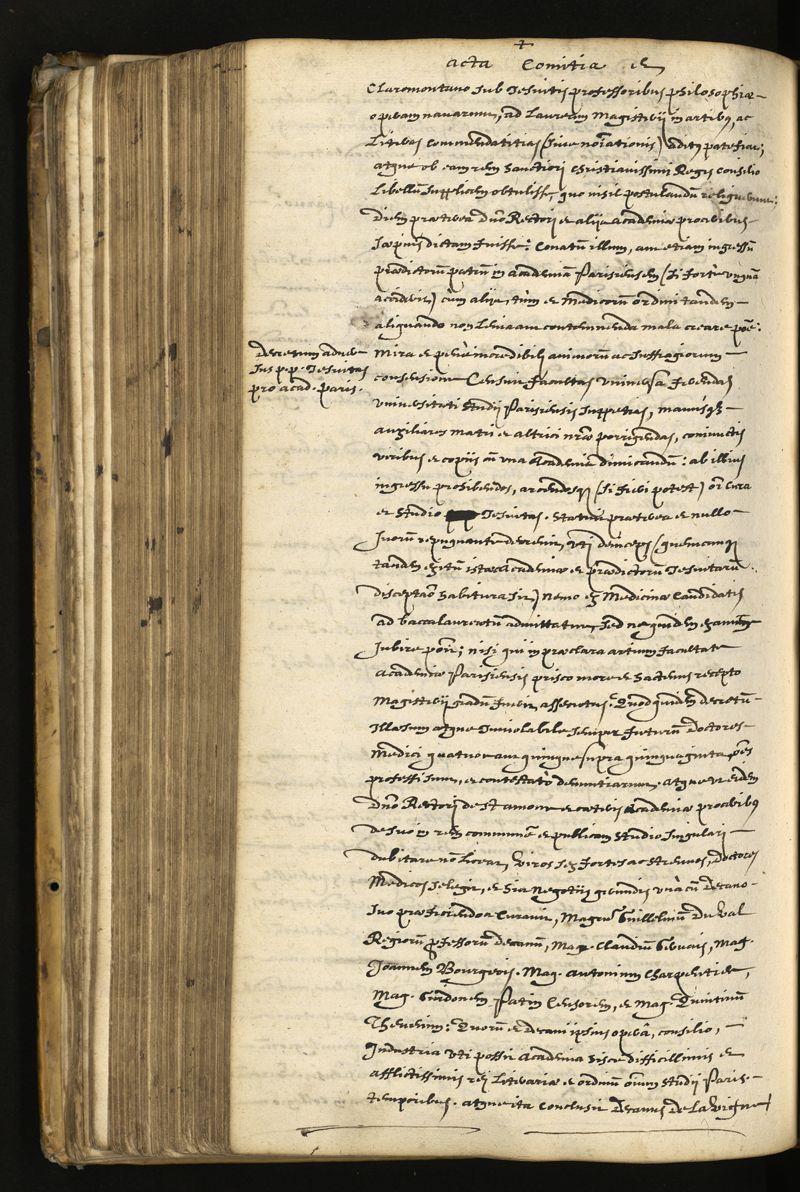 acta Comitia et
Claromontano sub Jesuitis professoribus philosophiæ
operam navarunt, ad Lauream Magisterii in artibus, ac
Literas commendatitias (sive no͞iationis) aditus patefiat;
atque ob eam rem Sanctiori Christianissimi Regis consilio
Libellū supplicem obtulisse, quo nisil postulandū
Diem præterea dño Rectori et aliis Academiæ proceribus
sæpius dictam fuisse: Conatū illum, aut etiam ingressū
prædictorū patrū in academiā Parisiensem (si fortè unquā
acciderit) cùm aliis, tùm et Medicorū ordini tandem
aliquando non Levia aut contemnenda mala creare posse:
Mira et penè incredibili animorū ac suffragiorum
consensione Censuit facultas universa ferendas
universitati studii Parisiensis suppetias, manusque
auxiliares matri et altrici nr̄æ porrigendas, conjunctis
viribus et copiis cū una Academia dimicandū: ab illius
ingressu prohibendos, arcendosque (si fieri potest) oī cura
et studio Jesuitas. statuit præterea et nullo
suorū repugnante decrevit, uti deinceps (quemcumque
tandem exitū istæc Academiæ et prædictorū Jesuitarū
disceptatio habitura sit) nemo ex Medicinæ Candidatis
ad baccalaureatū admittatur, sed ne quidem examen
subire possit; nisi qui in præclara artium facultate
Academiæ Parisiensis prisco more et hactenus recepto
Magisterii gradū fuerit assecutus. Quod quidem decretū
illæsum atque inviolabile semper futurū doctores
Medici quatuor aut quinque supra quinquaginta
professi sunt, et contestatò denuntiarunt. atque ut eidem
dño Rectori de st amour et cæteris Academiæ proceribus
de suo in rem communē et publicam studio singulari
dubitare nō Liceat, viros sex fortes ac strenuos, doctores
Medicos selegit, et hīc negotiis gerundis unà cū Decano
suo præficiendos curavit, Magrū Guillelmū Du Val
Regiorū professorū decanū, Mag. Claudiū Gervais, Mag.
Joannem Bourgeois. Mag. Antonium Charpentier,
Mag. Guidonem Patin Censorem, et Mag. Quintinū
Thevenin: Quorū et decani ipsius operâ, consilio,
Industria uti possit Academia hisce difficillimis et
afflictissimis rei Literariæ et ordinū oīum studii Paris.
temporibus. atque ita conclusit Decanus de la Vigne
Decretum adver
sus p.p. Jesuitas
pro acad. paris.